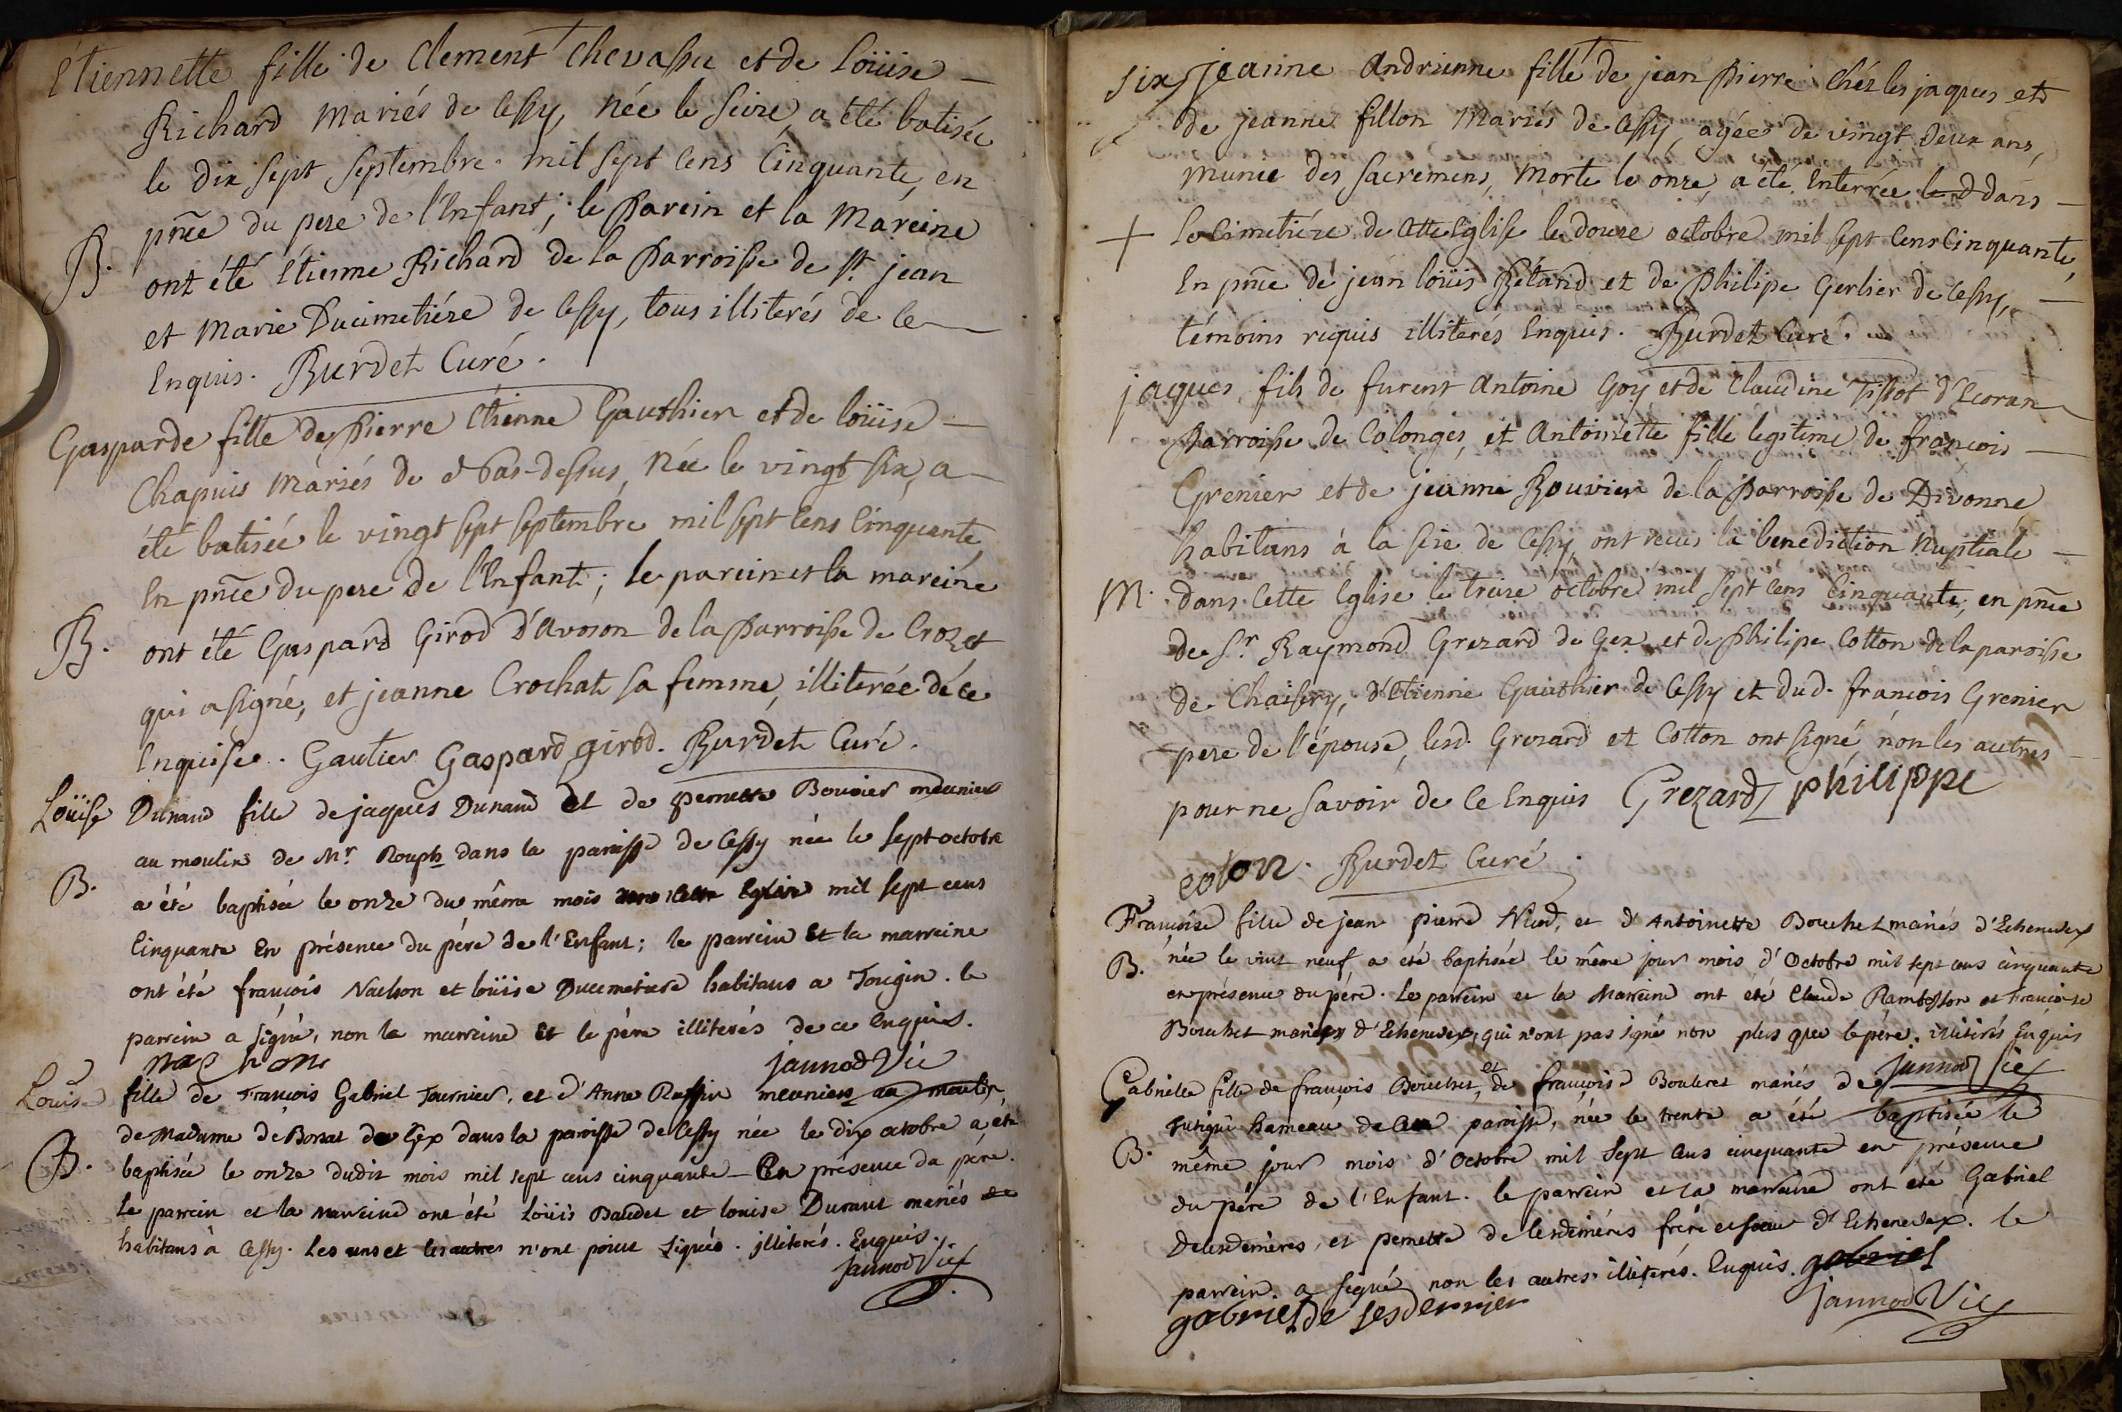 Etiennette fille de Clement Chevassu et de Loüise
Richard mariés de Cessy, née le seize, a été batisée
le dix sept septembre mil sept cens cinquante, en
pnce du pere de l'Enfant; le Parein et la Mareine
B. ont été Etienne Richard de la Parroisse de st. jean
et Marie Ducimetiére de Cessy, tous illiterés de ce
Enquis. Burdet Curé.
Gasparde fille de Pierre Etienne Gauthier et de loüise
Chapuis mariés de Pas-dessus, née le vingt six, a
été batisée le vingt sept septembre mil sept cens cinquante
En pnce du pere de l'Enfant; le parein et la mareine
B. ont été Gaspard Girod D'Avoson de la Parroisse de Crozet
qui a signé, et jeanne Crochat sa femme, illiterée de ce
Enquise. Gautier Gaspard girod. Burdet Curé.
Loüise Dunand fille de jaques Dunand et de pernette Bouvier meunier
au moulin de Mr. Rouph dans la paroisse de Cessy née le sept octobre
B. a été baptisée le onze du même mois mil sept cens
Cinquante En présence du pére de l'Enfant; le parrein Et la marreine
ont été françois Nachon et loüise Ducemetiere habitans a Tougin. le
parrein a signé, non la marreine Et le pére illiterés de ce Enquis.
nachon jannod Vic
Louise fille de François Gabriel Tournier, et d'Anne Ruffin meuniers au moulin
de Madame de Borsat de Gex dans la paroisse de Cessy née le dix octobre a été
B. baptisée le onze dudit mois mil sept cens cinquante En présence du pére.
Le parrein et la marreine ont été Loüis Baudet et louise Durant mariés
habitans à Cessy. Les uns et les autres n'ont point signés. illiterés. Enquis.
jannod Vic
six jeanne Andrienne fille de jean Pierre Chés les jaques et
de jeanne fillon mariés de Cessy, agée de vingt deux ans,
munie des sacremens, morte le onze, a été Enterrée dans
+ le Cimetiére de Cette Eglise le douze octobre mil sept cens Cinquante,
En pnce de jean loüis Pétard et de Philipe Gerlier de Cessy,
témoins requis illiterés Enquis. Burdet Curé.
jaques fils de furent Antoine Goy et de Claudine Tissot d'Ecoran
Parroisse de Colonges, et Antoinette fille legitime de françois
Grenier et de jeanne Bouvier de la Parroisse de Divonne
habitans à la sere de Cessy, ont reçus la benediction Nuptiale
M. dans Cette Eglise le treize octobre mil sept cens Cinquante, en pnce
de Sr. Raymond Grezard de Gex, et de Philipe Cotton de la paroisse
de Chaisery, d'Etienne Gauthier de Cessy et dud. françois Grenier
pere de l'épouse, lesd. Grezard et Cotton ont signé, non les autres
pour ne savoir de ce Enquis Grezard philippe
coton. Burdet Curé.
Françoise fille de jean pierre Niod, et d'Antoinette Bouchet mariés d'Echenevex
B. née le vint neuf, a été baptisée le même jour mois d'Octobre mil sept cens cinquante
en présence du pére. Le parrein et la Marreine ont été Claude Rambosson et Françoise
Bouchet mariés d'Echenevex, qui n'ont pas signé non plus que le pére. illiterés Enquis
jannod Vic
Gabrielle fille de françois Bouchet, et de françoise Bouleret mariés de
hameau de paroisse, née le trente a été baptisée le
B. même jour mois d'Octobre mil sept cens cinquante en présence
du pére de l'Enfant. le parrein et la marreine ont été Gabriel
Delesderniéres, et pernette de lesderniéres frére et soeur d'Echenevex. le
parrein a signé non les autres illiterés. Enquis. gabriel
gabriel de lesdernier jannod Vic